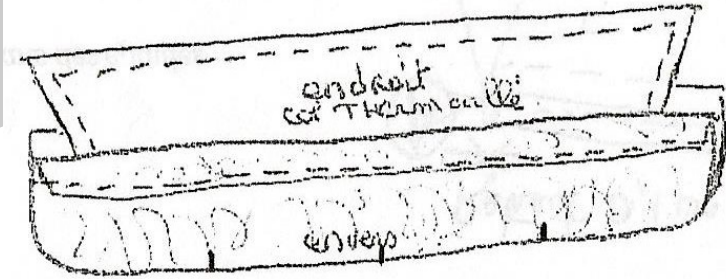 endroit
col Thermocollé
envers